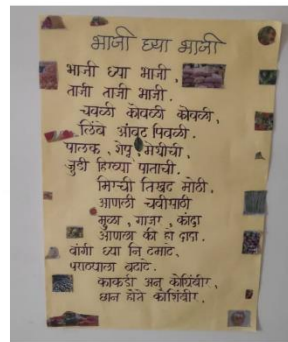 भाजी घ्या भाजी
भाजी घ्या भाजी,
ताजी ताजी भाजी.
चवळी कोवळी कोवळी,
लिंबे आंबट पिवळी.
पालक, शेपू, मेथीची,
जुडी हिरव्या पाताची.
मिरची तिखट मोठी,
आणली चवीपाठी
मुळा, गाजर, कांदा
आणला की हो दादा.
वांगी घ्या नि टमाटे,
पराठ्याला बटाटे.
काकडी अन् कोथिंबीर,
छान होते कोशिंबीर.